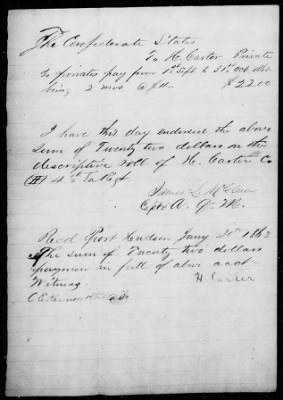 The Confederate States
To H. Carter Private
To privates pay from 1st Sept to 31st Oct 1862
being 2 mos @ $11. $22.00
I have this day endorsed the above
sum of Twenty two dollars on the
descriptive roll of H. Carter Co
4th La Regt
Capt & A. Q. M.
Recd Port Hudson Jany 30th 1863
The sum of Twenty two dollars
payment in full of above acct
H Carter
Witness